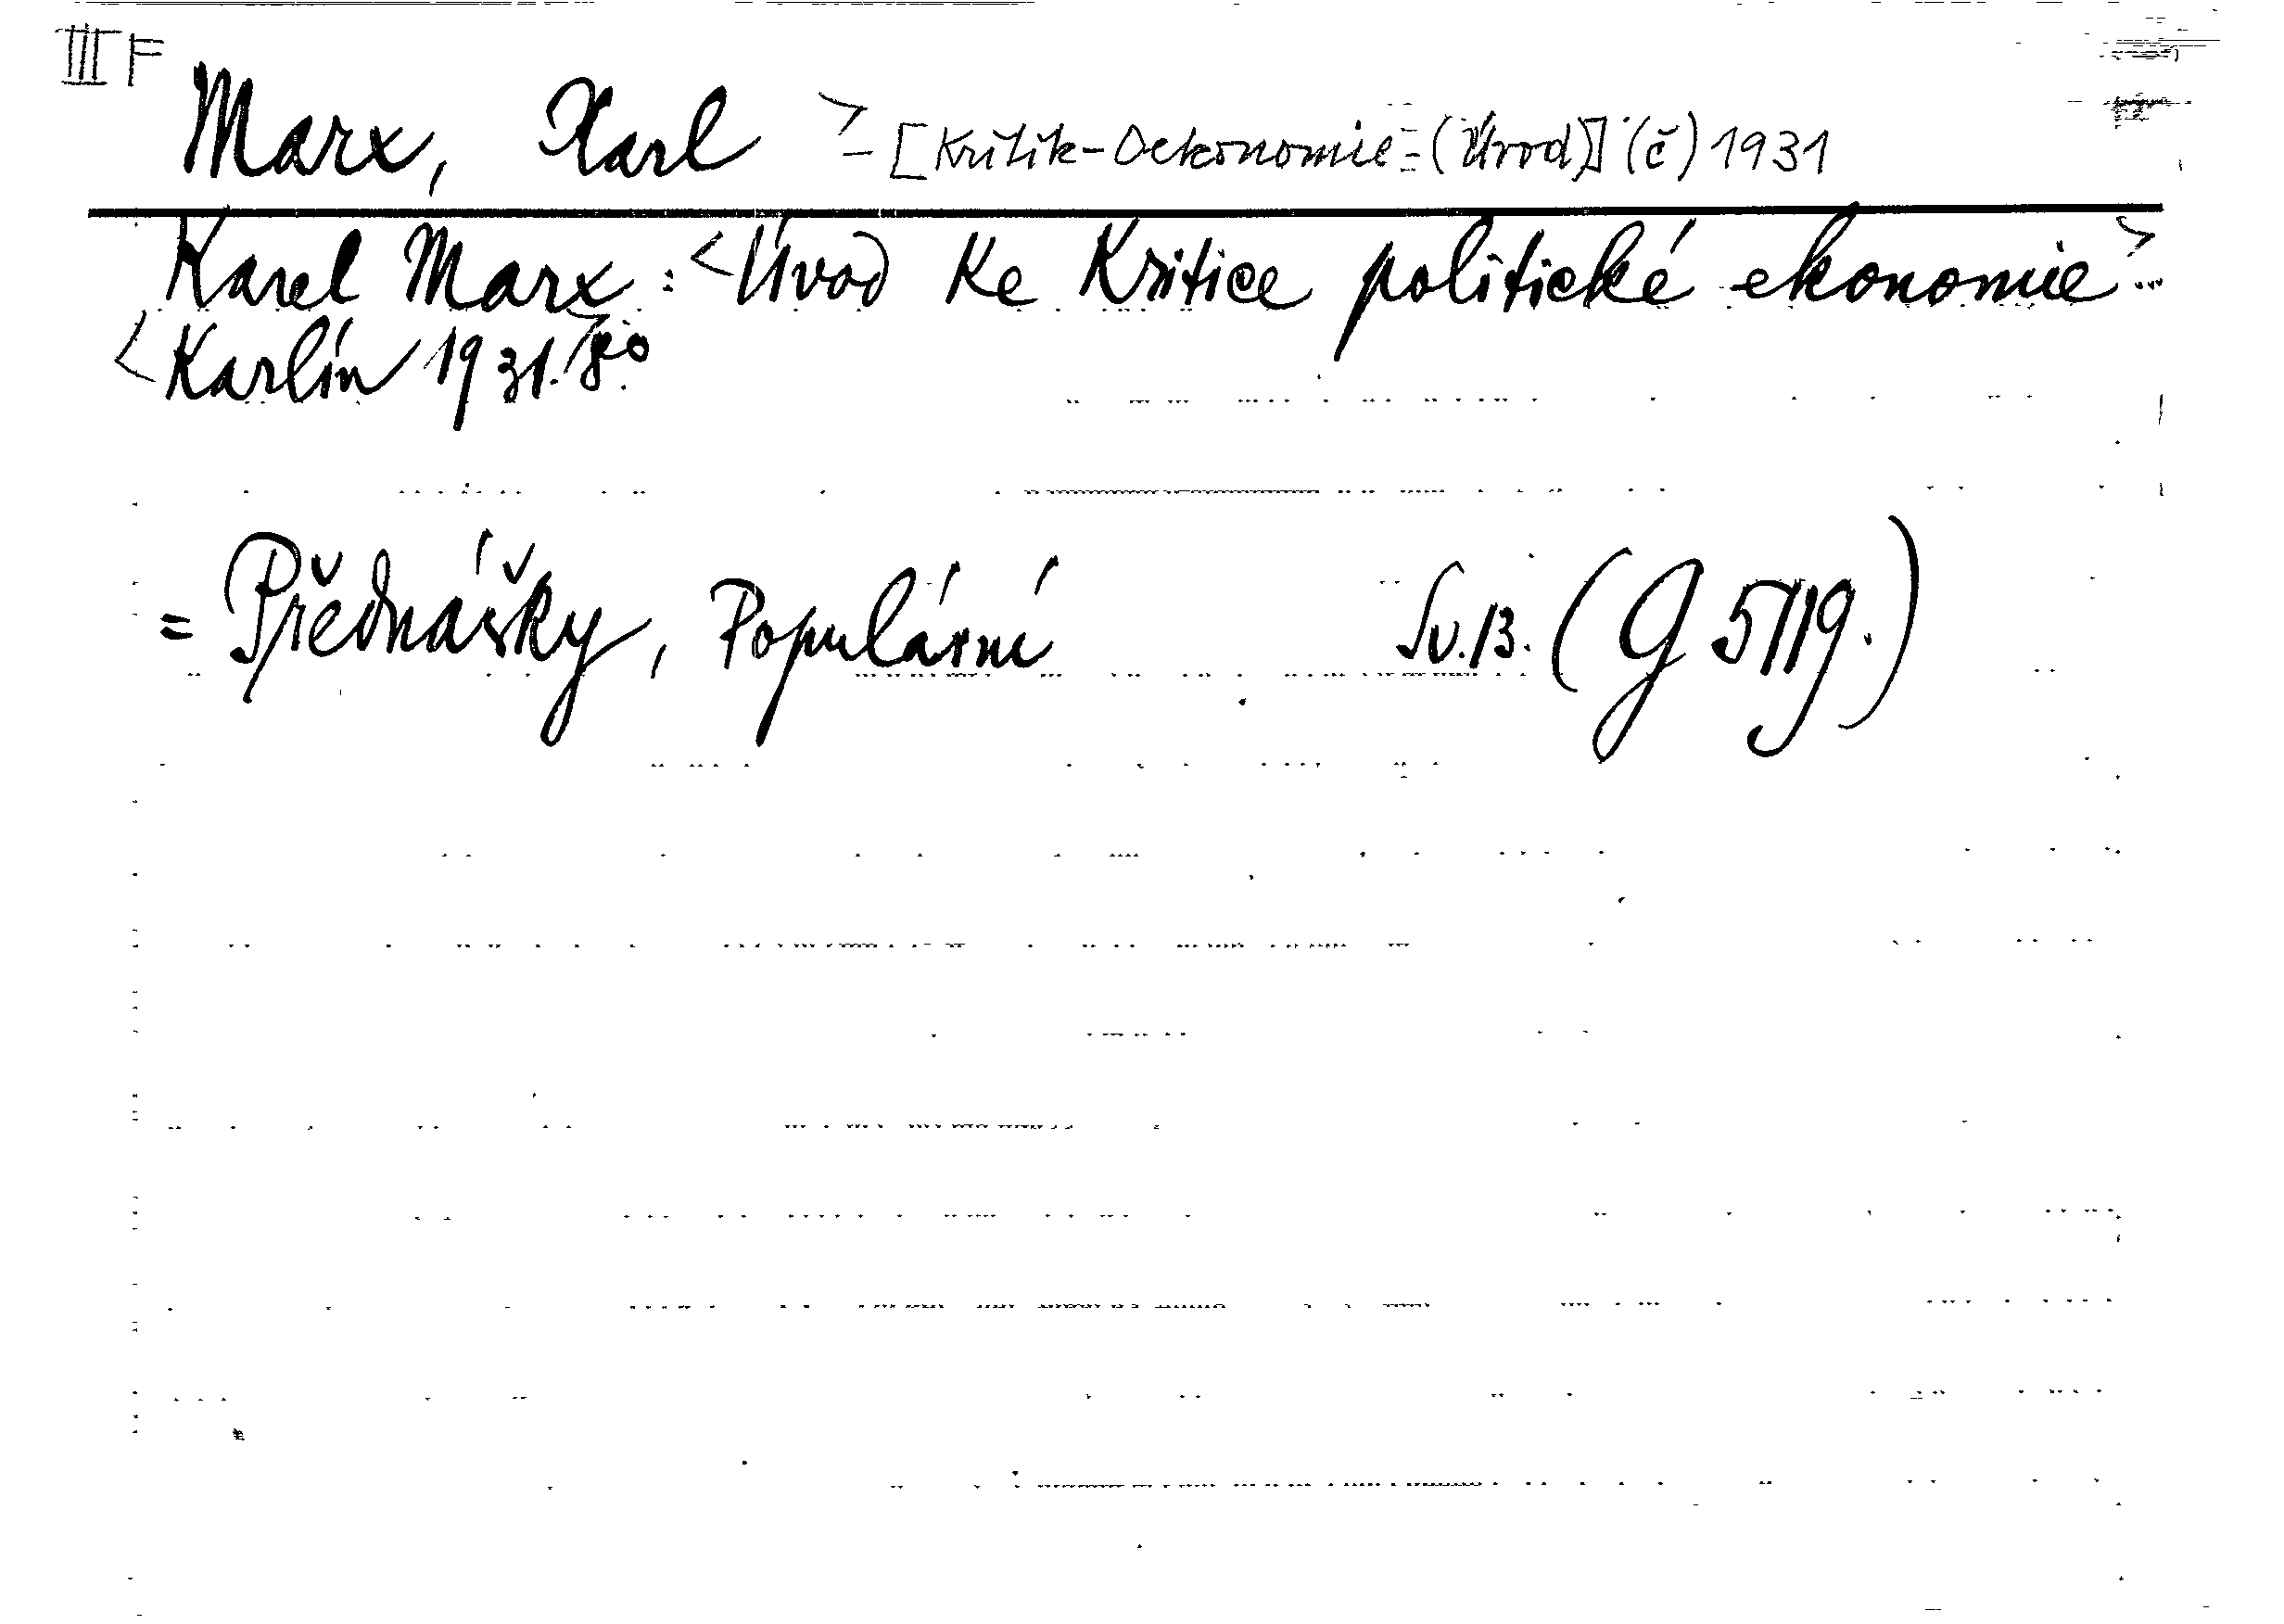 III F
Marx, Karl > - [Kritik-Oekonomie-(Úvod)] (č) 1931
Karel Marx: <Úvod ke Kritice politické ekonomie>
<Karlín 1931.> 8°
= Přednášky, Populární Sv. 13. (G 5119.)